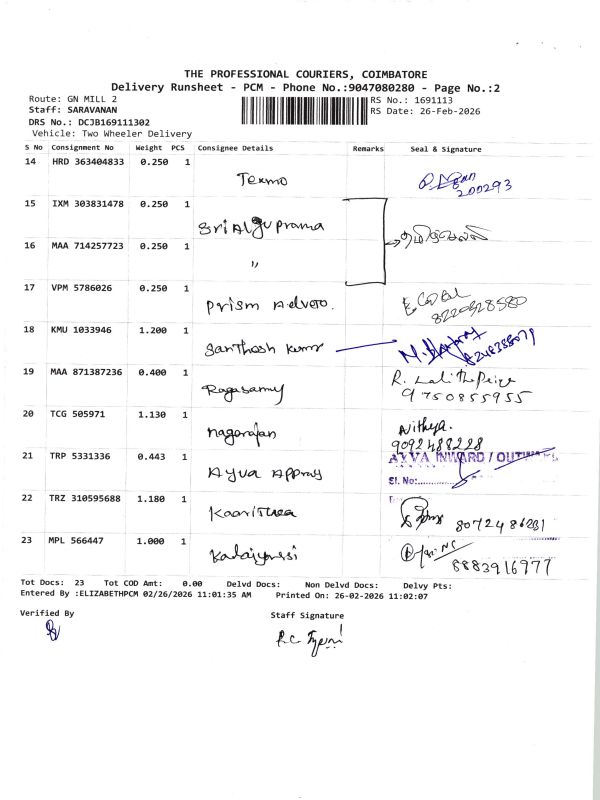 THE PROFESSIONAL COURIERS, COIMBATORE
Delivery Runsheet - PCM - Phone No.:9047080280 - Page No.:2
Route: GN MILL 2
Staff: SARAVANAN
DRS No.: DCJB169111302
Vehicle: Two Wheeler Delivery
RS No.: 1691113
RS Date: 26-Feb-2026
S No Consignment No Weight PCS Consignee Details Remarks Seal & Signature
14 HRD 363404833 0.250 1
Texmo 200293
15 IXM 303831478 0.250 1
16 MAA 714257723 0.250 1
"
17 VPM 5786026 0.250 1
Prism Adveto.
18 KMU 1033946 1.200 1
Santhosh Kumar
19 MAA 871387236 0.400 1
Ragasamy R.
9750855955
20 TCG 505971 1.130 1
nagarajan Nithya.
9092488228
21 TRP 5331336 0.443 1
Ayva AYVA INWARD /
Sl. No:
22 TRZ 310595688 1.180 1
23 MPL 566447 1.000 1
8883916977
Tot Docs: 23 Tot COD Amt: 0.00 Delvd Docs: Non Delvd Docs: Delvy Pts:
Entered By :ELIZABETHPCM 02/26/2026 11:01:35 AM Printed On: 26-02-2026 11:02:07
Verified By Staff Signature